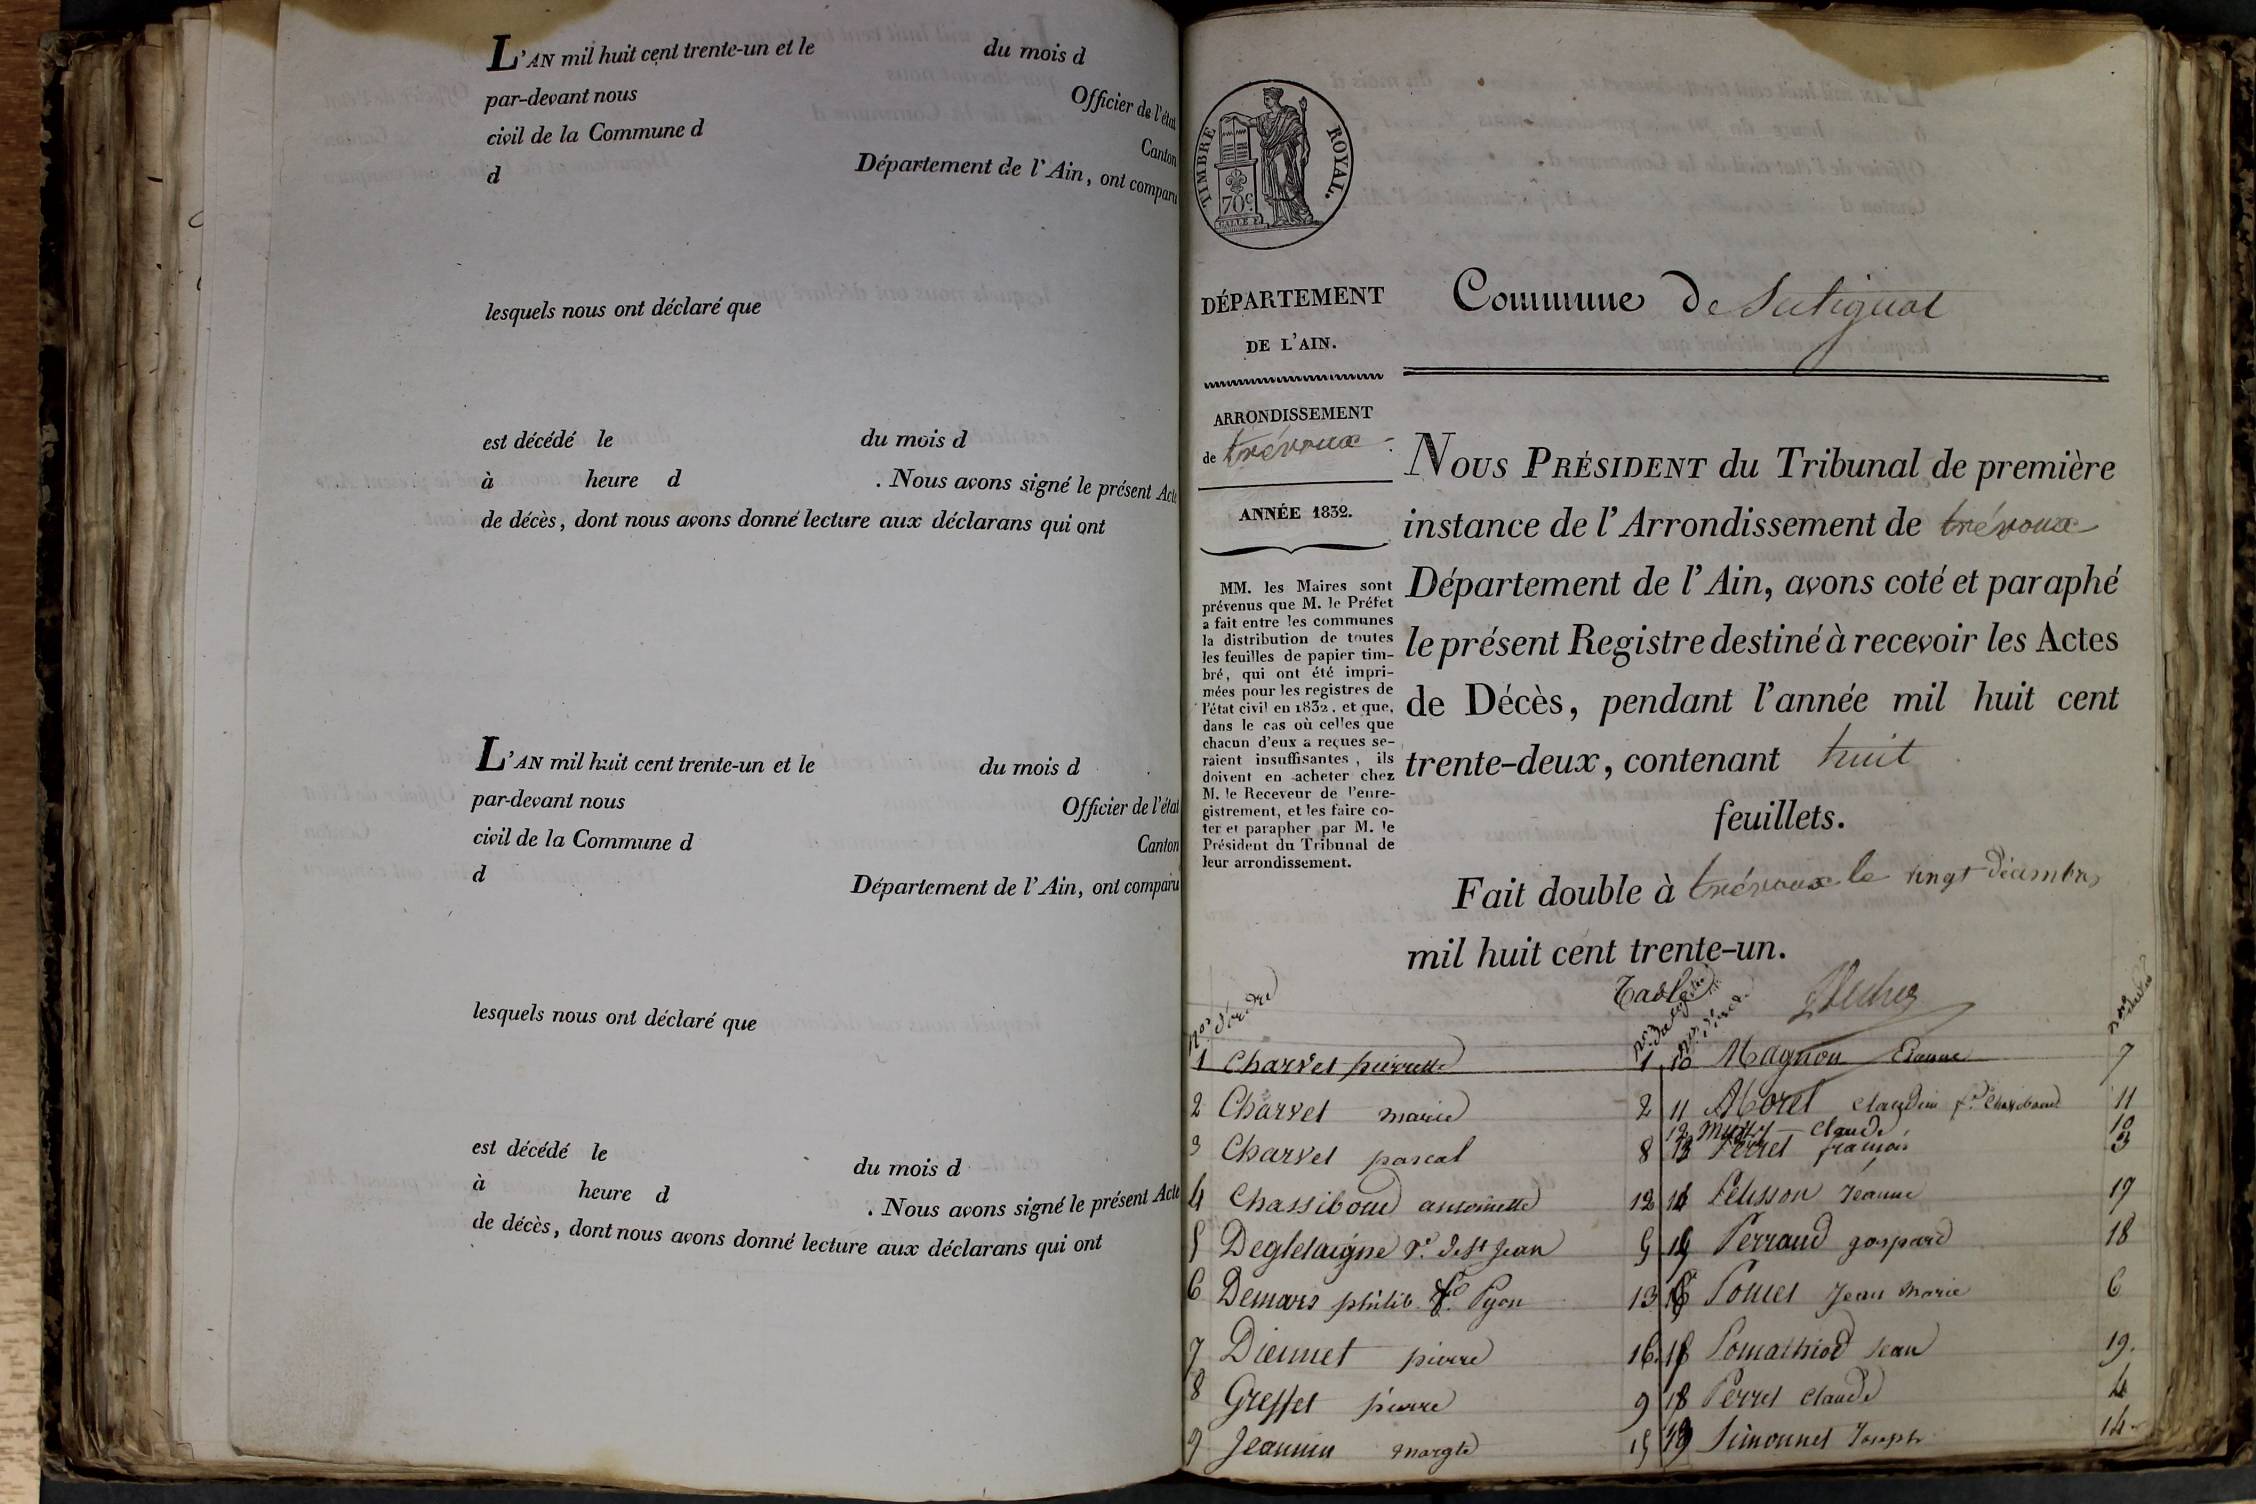 L'AN mil huit cent trente-un et le du mois d
par-devant nous Officier de l'état
civil de la Commune d Canton
d Département de l'Ain, ont comparu
lesquels nous ont déclaré que
est décédé le du mois d
à heure d . Nous avons signé le présent Acte
de décès, dont nous avons donné lecture aux déclarans qui ont
L'AN mil huit cent trente-un et le du mois d
par-devant nous Officier de l'état
civil de la Commune d Canton
d Département de l'Ain, ont comparu
lesquels nous ont déclaré que
est décédé le du mois d
à heure d . Nous avons signé le présent Acte
de décès, dont nous avons donné lecture aux déclarans qui ont
TIMBRE ROYAL.
70c.
DÉPARTEMENT
DE L'AIN.
ARRONDISSEMENT
de trévoux
ANNÉE 1832.
MM. les Maires sont
prévenus que M. le Préfet
a fait entre les communes
la distribution de toutes
les feuilles de papier tim-
bré, qui ont été impri-
mées pour les registres de
l'état civil en 1832, et que,
dans le cas où celles que
chacun d'eux a reçues se-
raient insuffisantes, ils
doivent en acheter chez
M. le Receveur de l'enre-
gistrement, et les faire co-
ter et parapher par M. le
Président du Tribunal de
leur arrondissement.
Commune de Sulignat
NOUS PRÉSIDENT du Tribunal de première
instance de l'Arrondissement de trévoux
Département de l'Ain, avons coté et paraphé
le présent Registre destiné à recevoir les Actes
de Décès, pendant l'année mil huit cent
trente-deux, contenant huit
feuillets.
Fait double à trévoux le vingt décembre
mil huit cent trente-un.
Table
nos d'ordre
1 Charvet pierrette 1
2 Charvet marie 2
3 Charvet pascal 8
4 Chassiboud antoinette 12
5 Degletaigne de St Jean 5
6 Demars philib. Pyon 13
7 Diennet pierre 16.
8 Greffet pierre 9
9 Jeannin margte 15
10 Magnon 7
11 Morel claudine 11
12 claude 10
13 Perret françois 3
14 Pelisson Jeanne 17
Perraud gaspard 18
Jean Marie 6
Pomathiod Jean 19.
18 Perret claude 4
19 Simonnet Joseph 14